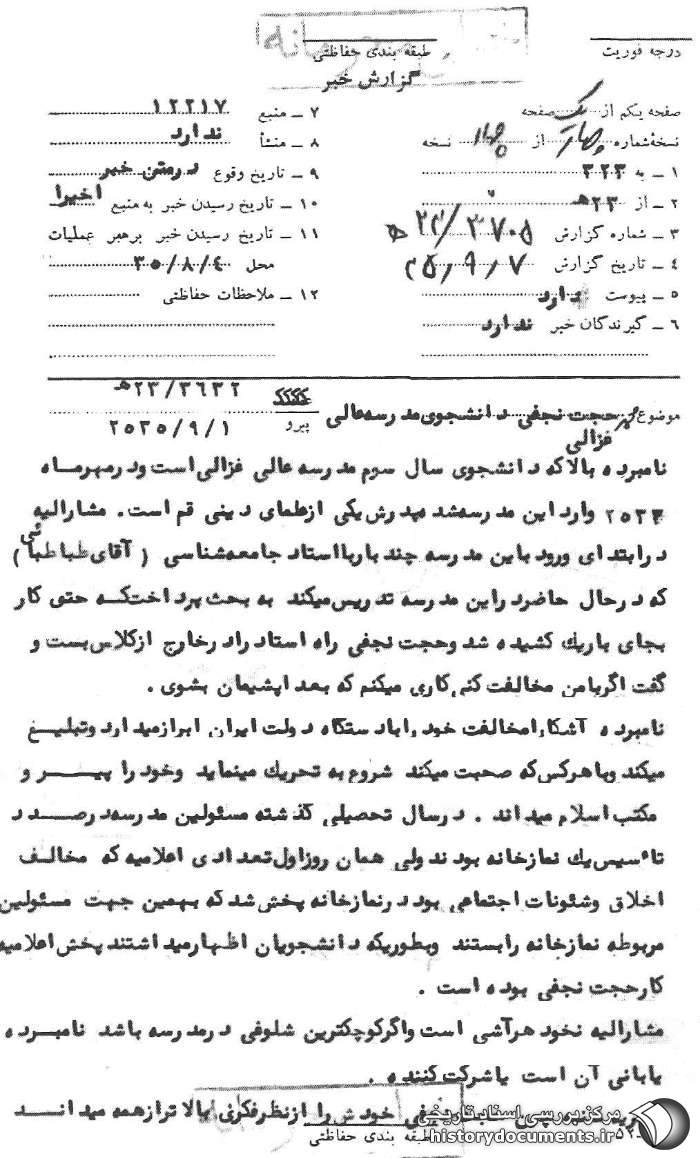 درجه فوریت
طبقه بندی حفاظتی
گزارش خبر
صفحه یکم از یک صفحه
نسخهٔ شماره چهار از چهار نسخه
۱ ـ به ۳۲۳
۲ ـ از ۲۳ هـ
۳ ـ شماره گزارش ۲۳/۳۷۰۵ هـ
۴ ـ تاریخ گزارش ۳۵,۹,۷
۵ ـ پیوست ندارد
۶ ـ گیرندگان خبر ندارد
۷ ـ منبع ۱۲۲۱۷
۸ ـ منشأ ندارد
۹ ـ تاریخ وقوع درمتن خبر
۱۰ ـ تاریخ رسیدن خبر به منبع اخیرا
۱۱ ـ تاریخ رسیدن خبر برهبر عملیات
محل ۳۵/۸/۴
۱۲ ـ ملاحظات حفاظتی
موضوع حجت نجفی دانشجوی مدرسه عالی
غزالی
پیرو ۲۳/۳۶۳۲ هـ
۲۵۳۵/۹/۱
نامبرده بالاکه دانشجوی سال سوم مدرسه عالی غزالی است ودرمهرماه
۲۵۳۳ وارد این مدرسه شد پدرش یکی ازعلمای دینی قم است. مشارالیه
درابتدای ورود باین مدرسه چند باربااستاد جامعه شناسی (آقای طباطبائی)
که درحال حاضردراین مدرسه تدریس میکند به بحث پرداخت که حتی کار
بجای باریک کشیده شد وحجت نجفی راه استاد رادرخارج ازکلاس بست و
گفت اگربامن مخالفت کنی کاری میکنم که بعد اپشیمان بشوی.
نامبرده آشکارامخالفت خود راباد ستگاه دولت ایران ابرازمیدارد وتبلیغ
میکند وباهرکس که صحبت میکند شروع به تحریک مینماید وخود را پیرو
مکتب اسلام میداند. درسال تحصیلی گذشته مسئولین مدرسه درصدد
تاٴسیس یک نمازخانه بودند ولی همان روزاول تعدادی اعلامیه که مخالف
اخلاق وشئونات اجتماعی بود درنمازخانه پخش شد که بهمین جهت مسئولین
مربوطه نمازخانه رابستند وبطوریکه دانشجویان اظهارمیداشتند پخش اعلامیه
کارحجت نجفی بوده است.
مشارالیه نخود هرآشی است واگرکوچکترین شلوغی درمدرسه باشد نامبرده
یابانی آن است یاشرکت کننده.
خودش را ازنظرفکری بالا ترازهمه میداند
طبقه بندی حفاظتی
مرکز بررسی اسناد تاریخی
historydocuments.ir